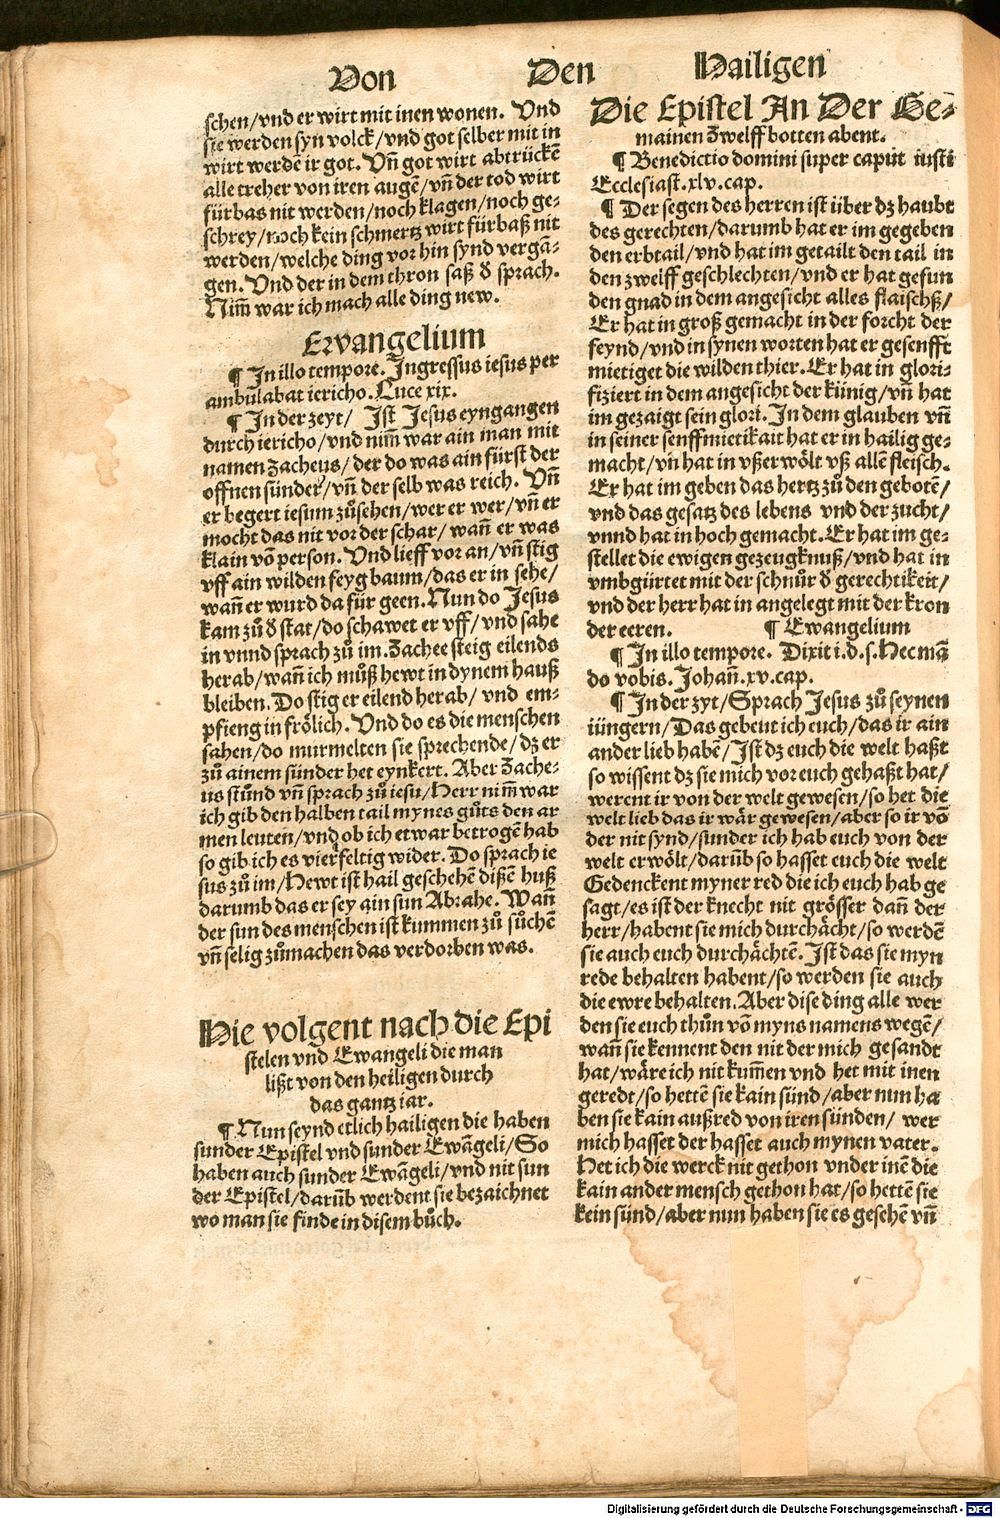 Von Den Hailigen
schen/vnd er wirt mit inen wonen. Vnd
sie werden syn volck/vnd got selber mit in
wirt werdē ir got. Vñ got wirt abtrückē
alle treher von iren augē/vñ der tod wirt
fürbas nit werden/noch klagen/noch ge⸗
schrey/noch kein schmertz wirt fürbaß nit
werden/welche ding vor hin synd vergā⸗
gen. Vnd der in dem thron saß d̕ sprach.
Nim̃ war ich mach alle ding new.
Ewangelium
¶ In illo tempore. Ingressus iesus per
ambulabat iericho. Luce xix.
¶ In der zeyt/ Ist Jesus eyngangen
durch iericho/vnd nim̃ war ain man mit
namen Zacheus/der do was ain fürst der
offnen sünder/vñ der selb was reich. Vñ
er begert iesum zůsehen/wer er wer/vñ er
mocht das nit vor der schar/wañ er was
klain vō person. Vnd lieff vor an/vñ stig
vff ain wilden feygbaum/das er in sehe/
wañ er wurd da für geen. Nun do Jesus
kam zů d̕ stat/do schawet er vff/vnd sahe
in vnnd sprach zů im. Zachee steig eilends
herab/wañ ich můß hewt in dynem hauß
bleiben. Do stig er eilend herab/ vnd em⸗
pfieng in frölich. Vnd do es die menschen
sahen/do murmelten sie sprechende/dz er
zů ainem sünder het eynkert. Aber Zache⸗
us stůnd vñ sprach zů iesu/Herr nim̃ war
ich gib den halben tail mynes gůts den ar
men leuten/vnd ob ich etwar betrogē hab
so gib ich es vierfeltig wider. Do sprach ie
sus zů im/Hewt ist hail geschehē disē huß
darumb das er sey ain sun Abrahe. Wañ
der sun des menschen ist kummen zů sůchē
vñ selig zůmachen das verdorben was.
Hie volgent nach die Epi
stelen vnd Ewangeli die man
lißt von den heiligen durch
das gantz iar.
¶ Nun seynd etlich hailigen die haben
sunder Epistel vnd sunder Ewāgeli/So
haben auch sunder Ewāgeli/vnd nit sun
der Epistel/darūb werdent sie bezaichnet
wo man sie finde in disem bůch.
Die Epistel An Der Ge⸗
mainen Zwelffbotten abent.
¶ Benedictio domini super caput iusti
Ecclesiast. xlv. cap.
¶ Der segen des herren ist über dz haubt
des gerechten/darumb hat er im gegeben
den erbtail/vnd hat im getailt den tail in
den zwelff geschlechten/vnd er hat gefun
den gnad in dem angesicht alles flaischß/
Er hat in groß gemacht in der forcht der
feynd/vnd in synen worten hat er gesenfft
mietiget die wilden thier. Er hat in glori⸗
fiziert in dem angesicht der künig/vñ hat
im gezaigt sein glori. In dem glauben vñ
in seiner senffmietikait hat er in hailig ge⸗
macht/vñ hat in vßerwölt vß allē fleisch.
Er hat im geben das hertz zů den gebotē/
vnd das gesatz des lebens vnd der zucht/
vnnd hat in hoch gemacht. Er hat im ge⸗
stellet die ewigen gezeugknuß/vnd hat in
vmbgürtet mit der schnůr d̕ gerechtikeit/
vnd der herr hat in angelegt mit der kron
der eeren. ¶ Ewangelium
¶ In illo tempore. Dixit i. d. s. Hec mā
do vobis. Johañ. xv. cap.
¶ In der zyt/Sprach Jesus zů seynen
iüngern/Das gebeut ich euch/das ir ain
ander lieb habē/Ist dz euch die welt haßt
so wissent dz sie mich vor euch gehaßt hat/
werent ir von der welt gewesen/so het die
welt lieb das ir wär gewesen/aber so ir vō
der nit synd/sunder ich hab euch von der
welt erwölt/darūb so hasset euch die welt
Gedenckent myner red die ich euch hab ge
sagt/es ist der knecht nit grösser dañ der
herr/habent sie mich durchächt/so werdē
sie auch euch durchächtē. Ist das sie myn
rede behalten habent/so werden sie auch
die ewre behalten. Aber dise ding alle wer
den sie euch thůn vō myns namens wegē/
wañ sie kennent den nit der mich gesandt
hat/wäre ich nit kum̃en vnd het mit inen
geredt/so hettē sie kain sünd/aber nun ha
ben sie kain außred von iren sünden/ wer
mich hasset der hasset auch mynen vater.
Het ich die werck nit gethon vnder inē die
kain ander mensch gethon hat/so hettē sie
kein sünd/aber nun haben sie es gesehē vñ
Digitalisierung gefördert durch die Deutsche Forschungsgemeinschaft - DFG